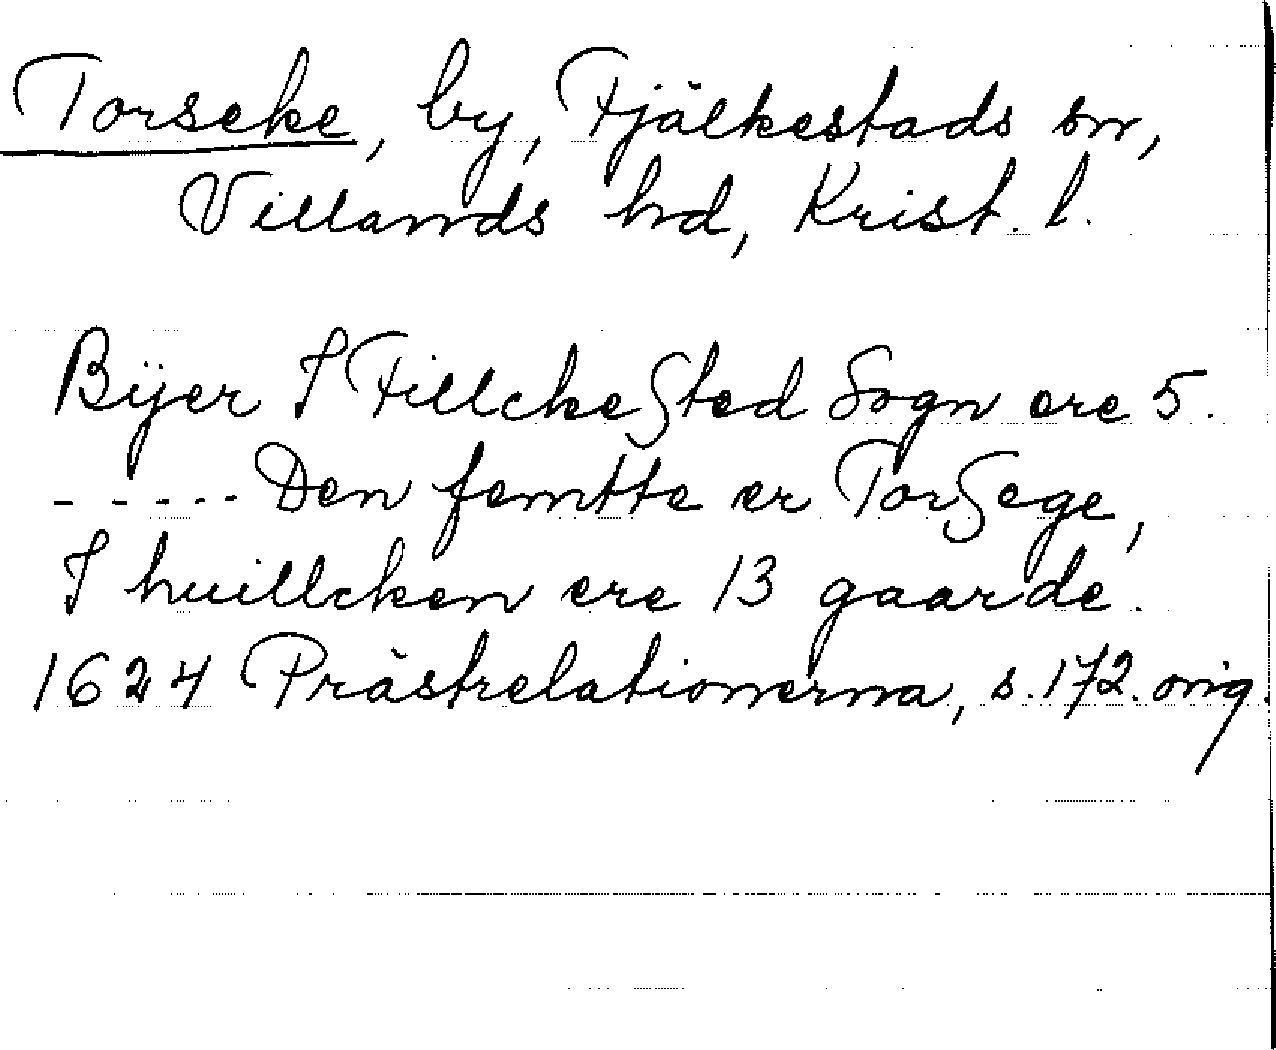 Torseke, by, Fjälkestads sn,
Villands hd, Krist. l.
Bÿer I FillckeSted Sogn ere 5.
- - - - - Den femtte er TorSege,
I huillcken ere 13 gaarde.
1624 Prästrelationerna, s. 172. orig.